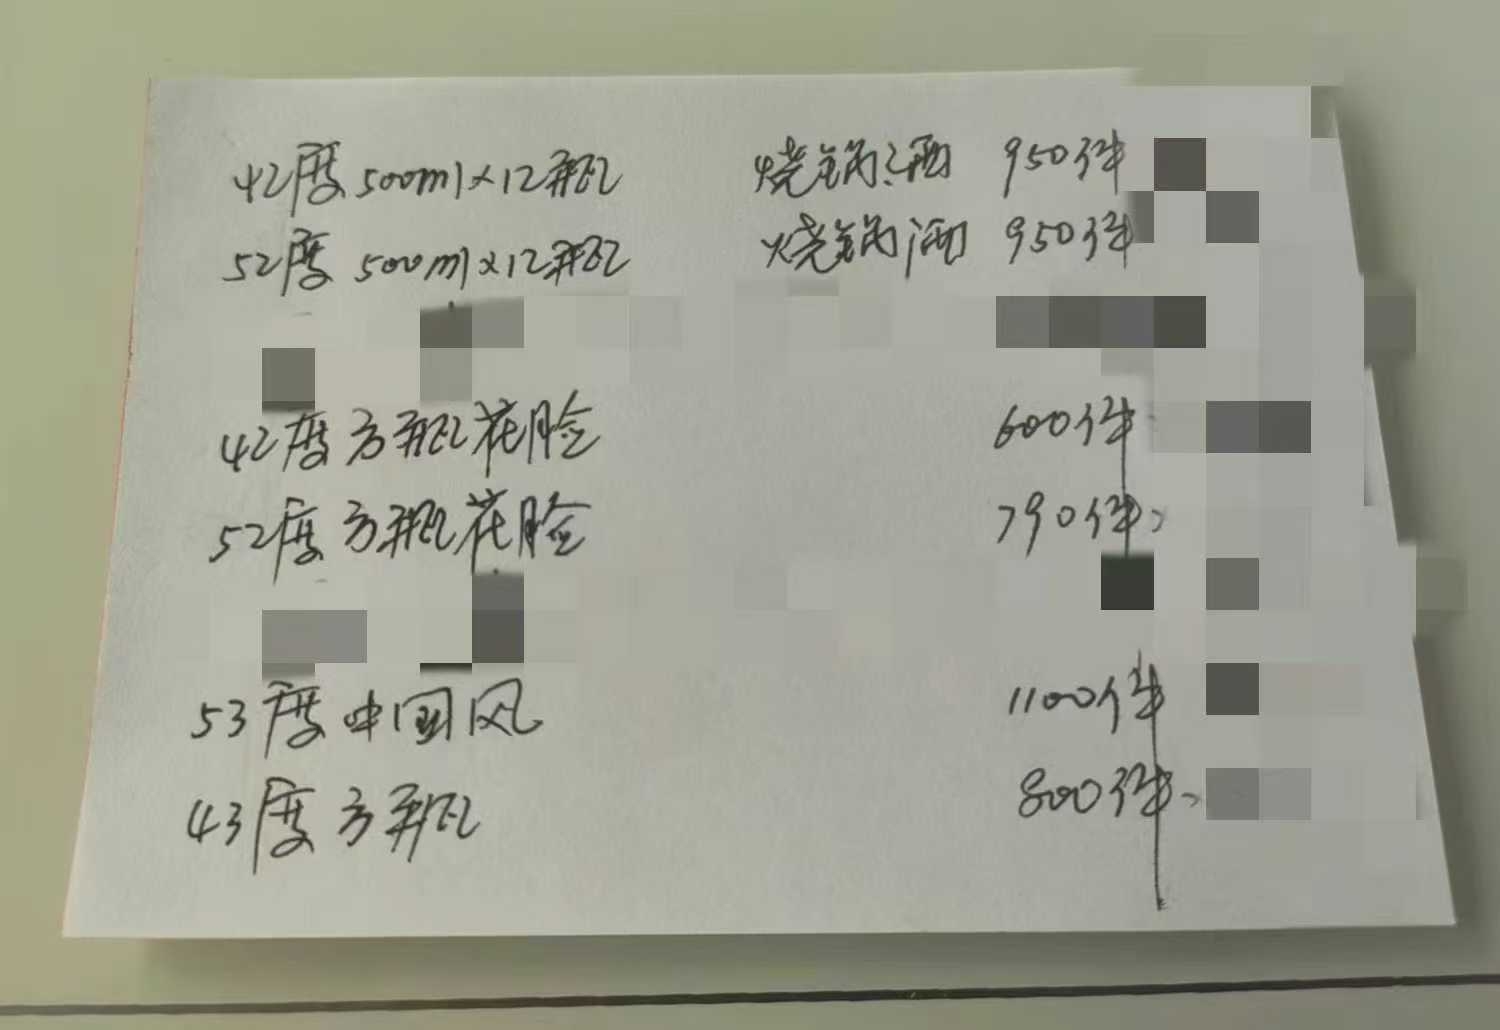 42度500ml×12瓶 烧锅酒 950件
52度500ml×12瓶 烧锅酒 950件
42度方瓶花脸 600件
52度方瓶花脸 790件
53度中国风 1100件
43度方瓶 800件